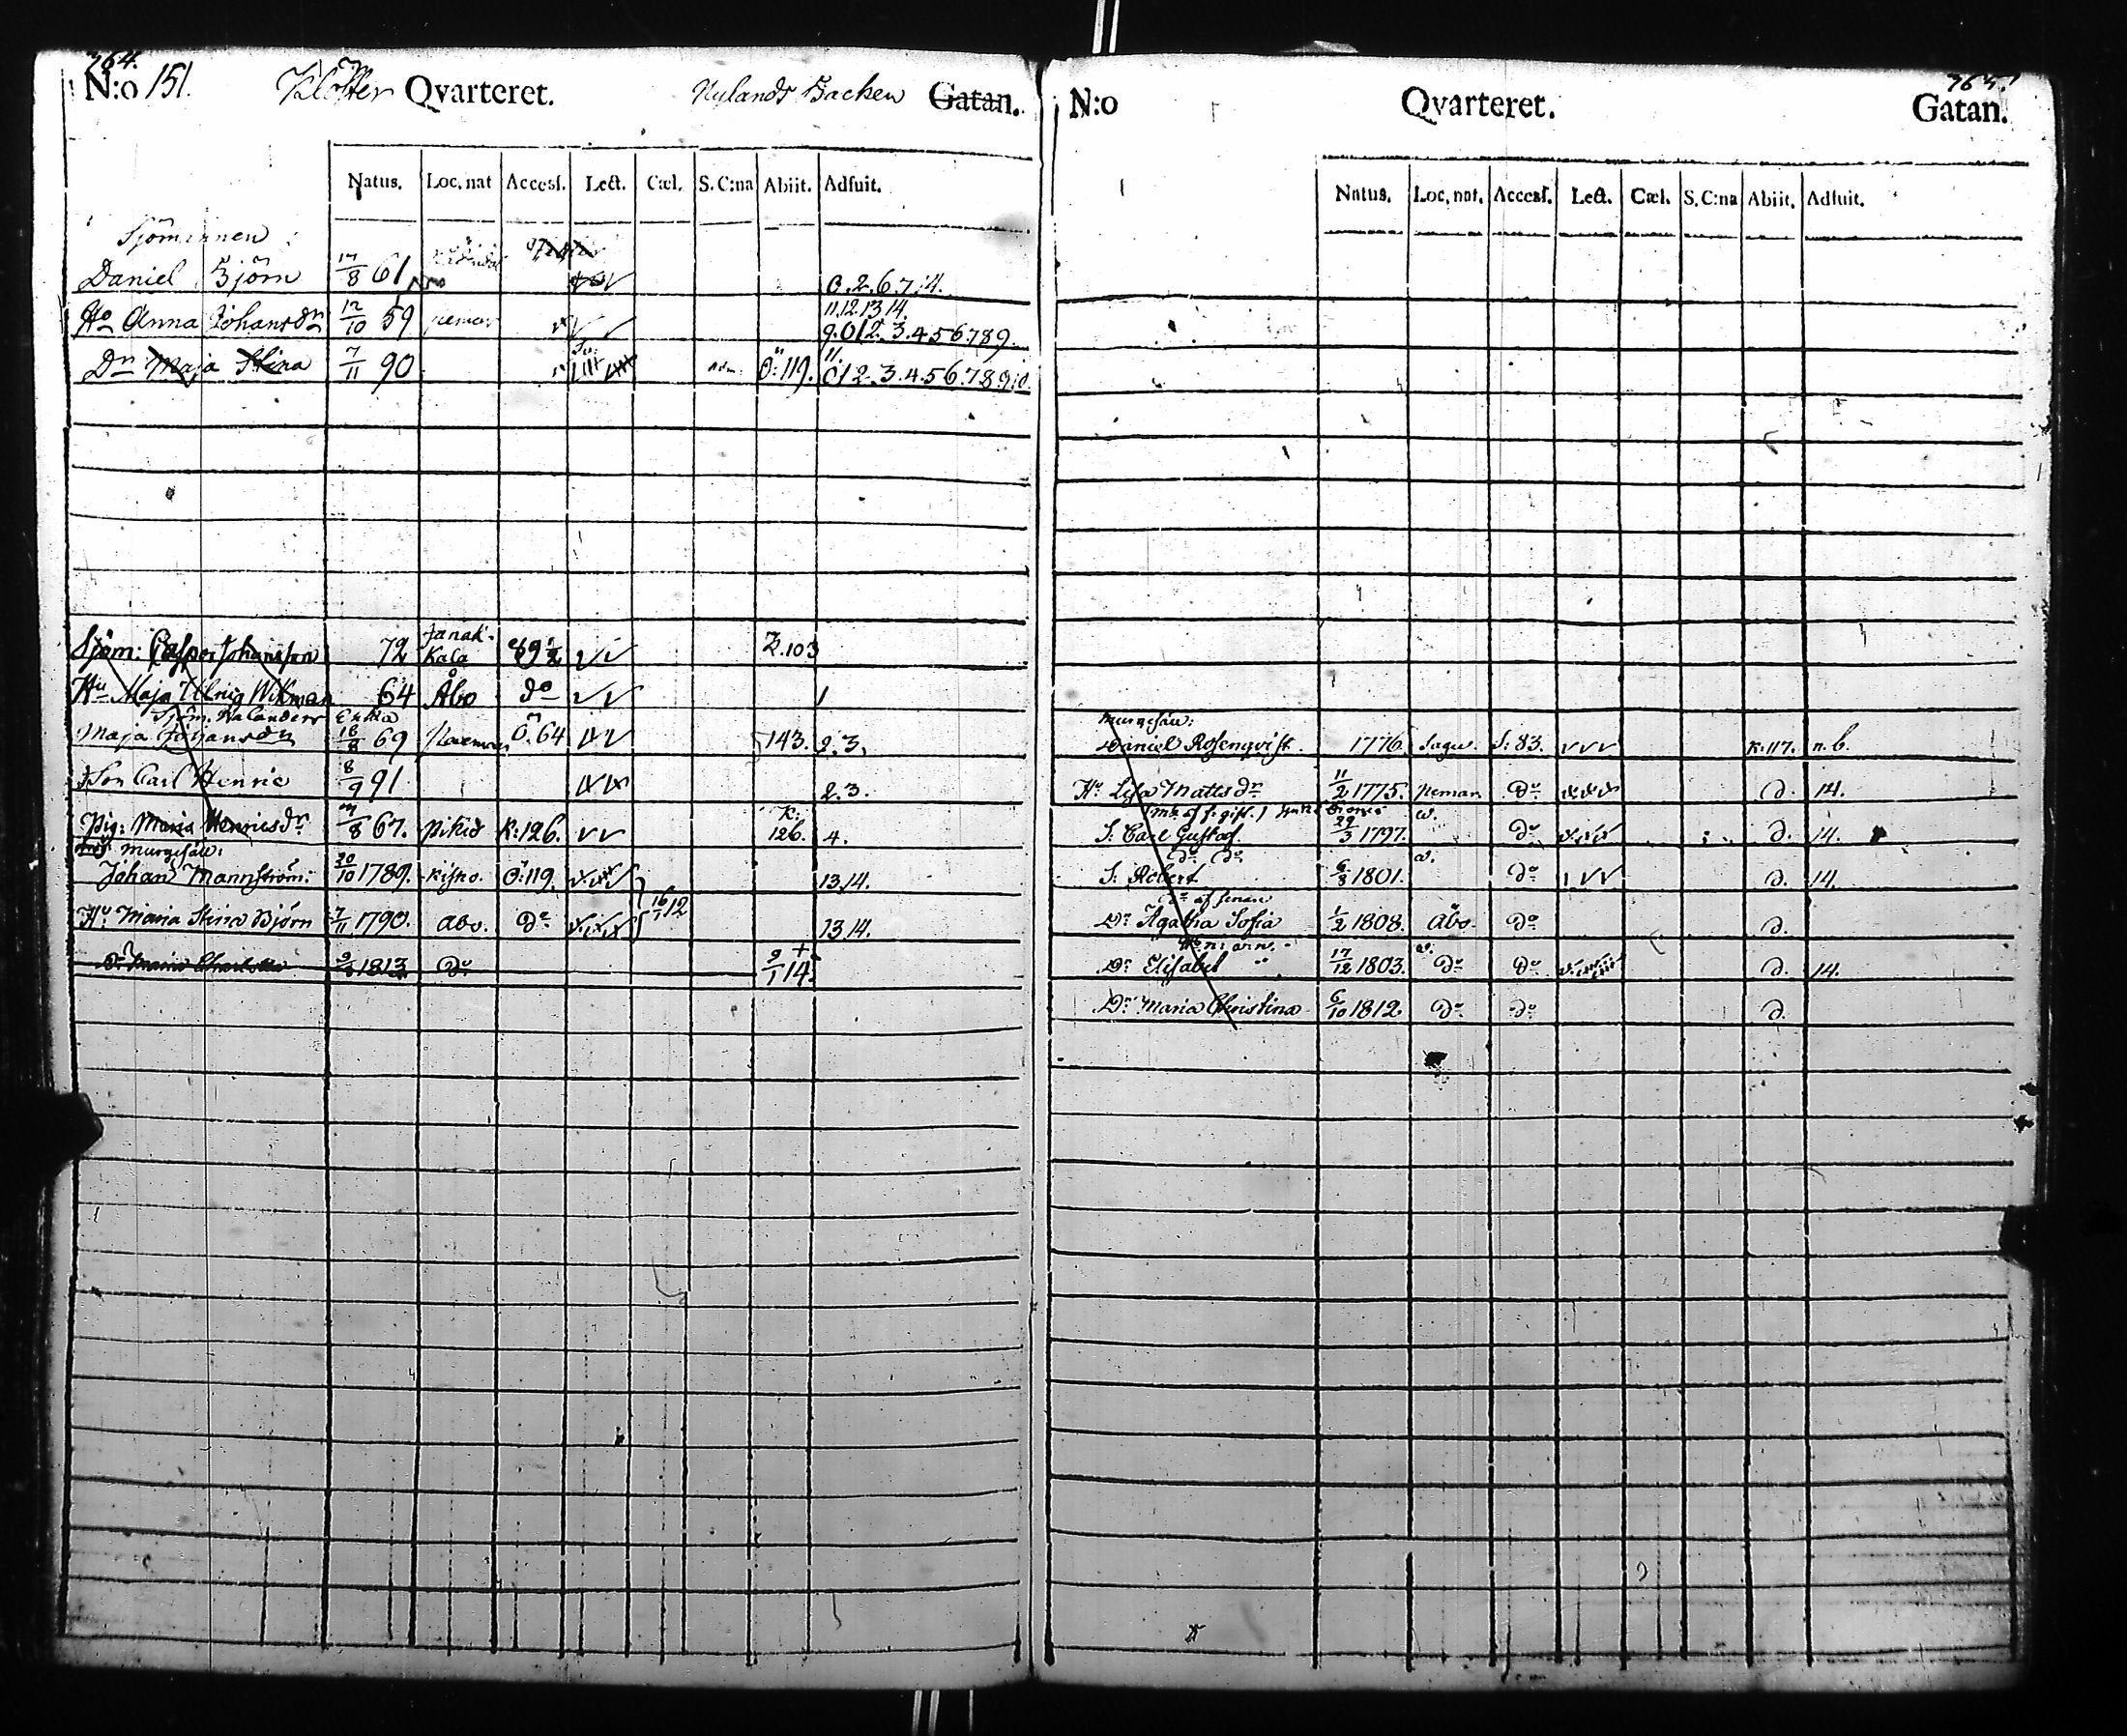 764.
N:o 151. Kloster Qvarteret. Nylands Backen Gatan.
Natus. Loc, nat Accesſ. Lect. Cæl. S. C:na Abiit. Adfuit.
Sjömannen
Daniel Björn 17/8 61 0. 2. 6. 7. 14.
11. 12. 13. 14.
Ho Anna Johansdr 12/10 59 pemar 9. 0 1 2. 3. 4. 5 6. 7 8 9.
Dr Maja Stina 7/11 90 Adm. Ö: 119. 0 1 2. 3. 4. 5 6. 7 8 9. 10.
Sjöm: Casper Johansson 72 Janak-kala 89 1/2 K. 103
Hu Maja Ulrica Wikman 64 Åbo do 1
Sjöm. Kalanders Enka
Maja Johansdr 18/8 69 Ö. 64 143. 2. 3.
Son Carl Henric 8/9 91 2. 3.
Pig: Maria Henricsdr /8 67. Pikis K: 126. K: 126. 4.
Murgesäll:
Johan Mannström: 30/10 1789. Kisko. Ö: 119. 13. 14.
16/1 12
Hu Maria Stina Björn 7/11 1790. Åbo. Do 13. 14.
Dr Maria Charlotta 1813 Do 2/1 14. +
765.
N:o Qvarteret. Gatan.
Natus. Loc, nat. Accesſ. Lect. Cæl. S. C:na Abiit. Adfuit.
Murgesäll:
Daniel Rosenqvist. 1776. Sagu. S: 83. K: 117. n. b.
Hu Lisa Mattsdr 11/2 1775. Pemar. Do D. 14.
S: Carl Gustaf 29/3 1797. Do D. 14.
Do Do
S: Robert 6/8 1801. Do D. 14.
Dr Agatha Sofia 1/2 1808. Åbo. Do D.
Dr Elisabet 17/12 1803. Do Do D. 14.
Dr Maria Christina 6/10 1812 Do Do D.